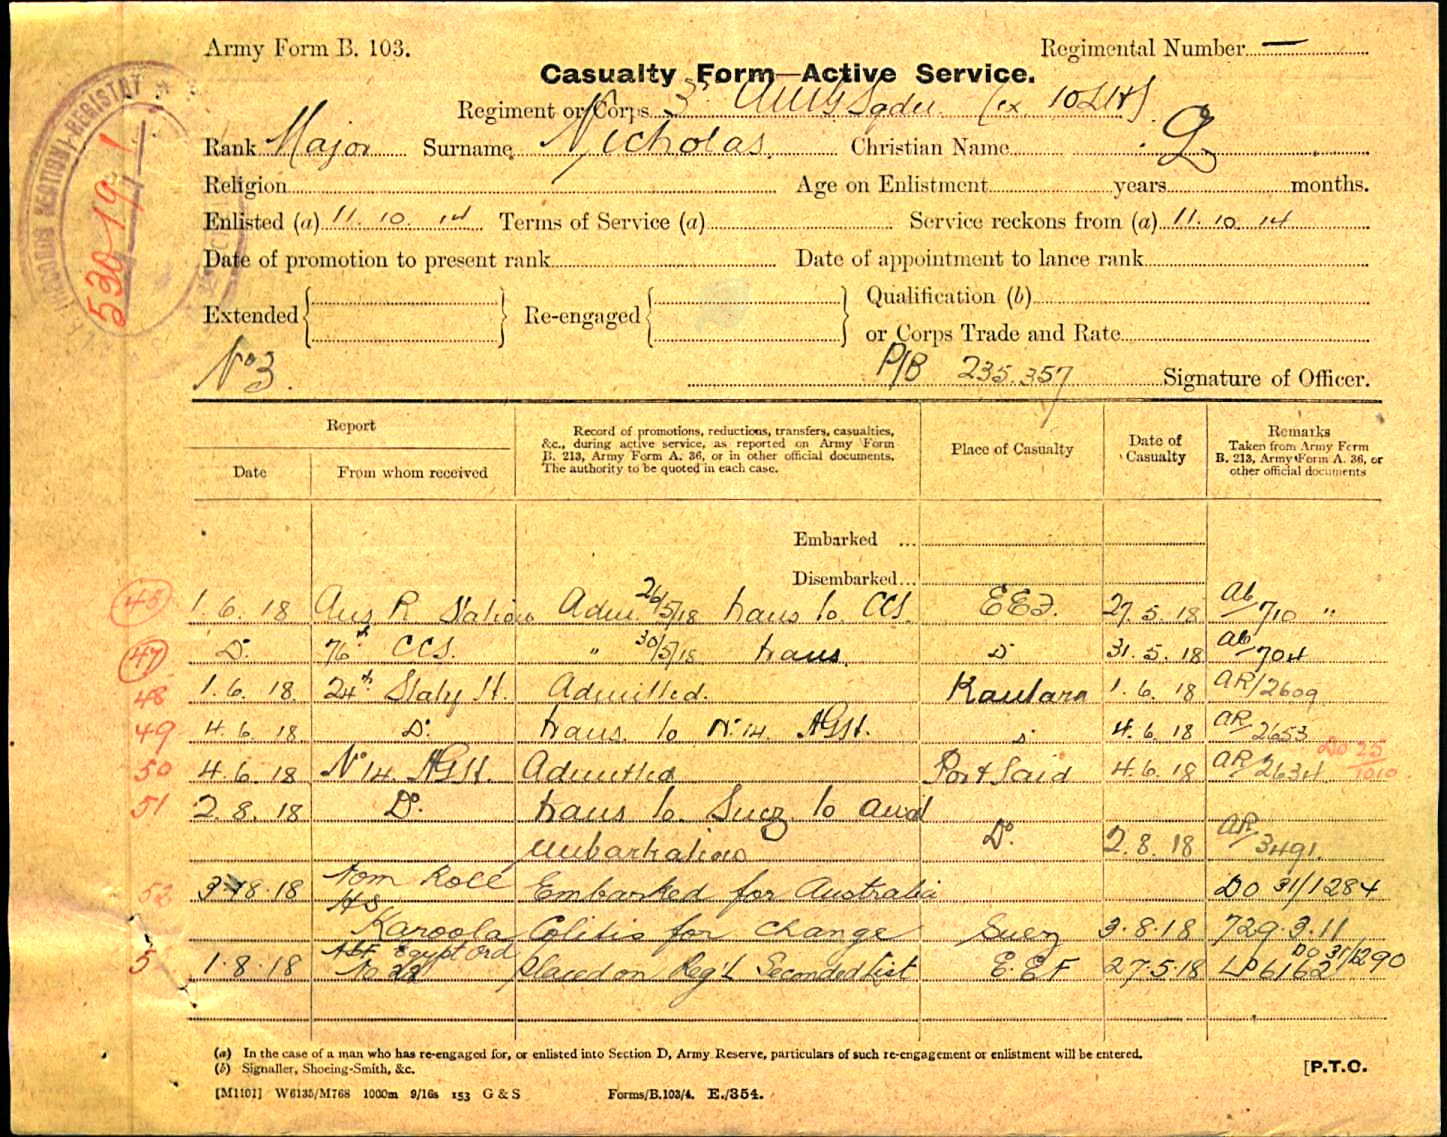 Army Form B. 103.
Regimental Number —
Casualty Form—Active Service.
Regiment or Corps 3rd Sqdn. (ex 10LH)
Rank Major Surname Nicholas. Christian Name
Religion Age on Enlistment years months.
Enlisted (a) 11. 10. 14 Terms of Service (a) Service reckons from (a) 11. 10. 14
Date of promotion to present rank Date of appointment to lance rank
Extended Re-engaged Qualification (b)
or Corps Trade and Rate
No 3. P/B 235.357 Signature of Officer.
RECORDS SECTION REGISTRY
530 19
Report
Date From whom received
Record of promotions, reductions, transfers, casualties,
&c., during active service, as reported on Army Form
B. 213, Army Form A. 36, or in other official documents.
The authority to be quoted in each case.
Place of Casualty
Date of
Casualty
Remarks
Taken from Army Form
B. 213, Army Form A. 36, or
other official documents
Embarked ...
Disembarked...
1. 6. 18 Aus R Station Adm. 26/5/18 trans to CCS. EEF. 27. 5. 18 Ab/710 "
47 Do. 76th CCS. " 30/5/18 trans. Do 31. 5. 18 Ab/704
48 1. 6. 18. 24th Staty H. Admitted. Kantara 1. 6. 18 AR/2609
49 4. 6. 18 Do. trans. to No 14. AGH. Do 4. 6. 18 AR/2653
50 4. 6. 18 No 14. AGH. Admitted Port Said 4. 6. 18 AR/2634 DO 25/1010
51 2. 8. 18 Do. trans to. Suez to await
embarkation Do. 2. 8. 18 AR/3491.
52 3 8 18 Nom Roll Embarked for Australia DO 31/1284
HS
Karoola Colitis for change Suez 3.8.18 729.3.11
5 1.8.18 AIF Egypt Ord Placed on Reg'l Seconded List E.E.F 27.5.18 LP 6162 DO 31/1290
(a) In the case of a man who has re-engaged for, or enlisted into Section D, Army Reserve, particulars of such re-engagement or enlistment will be entered.
(b) Signaller, Shoeing-Smith, &c.
[P.T.O.
[M1101] W6135/M768 1000m 9/16s 153 G & S Forms/B.103/4. E./354.